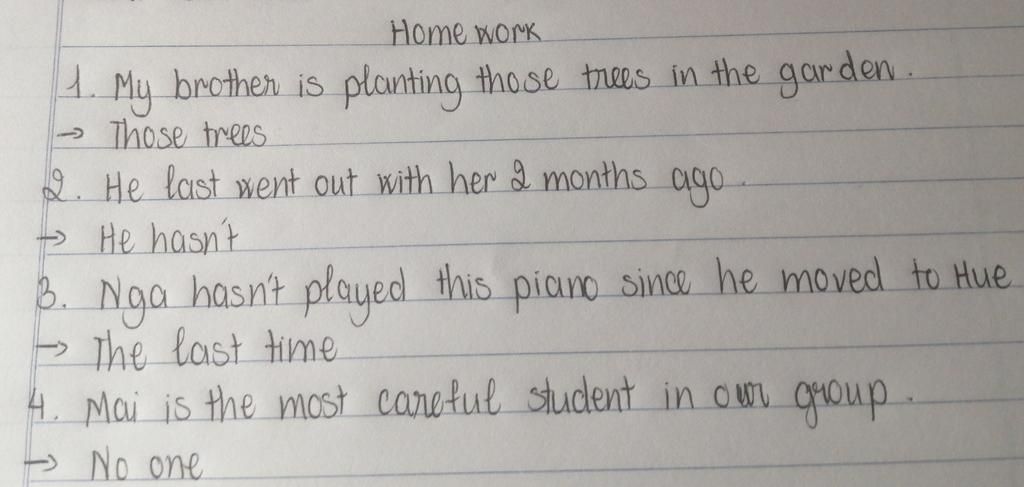 Home work
1. My brother is planting those trees in the garden.
→ Those trees
2. He last went out with her 2 months ago.
→ He hasn't
3. Nga hasn't played this piano since he moved to Hue
→ The last time
4. Mai is the most careful student in our group.
→ No one